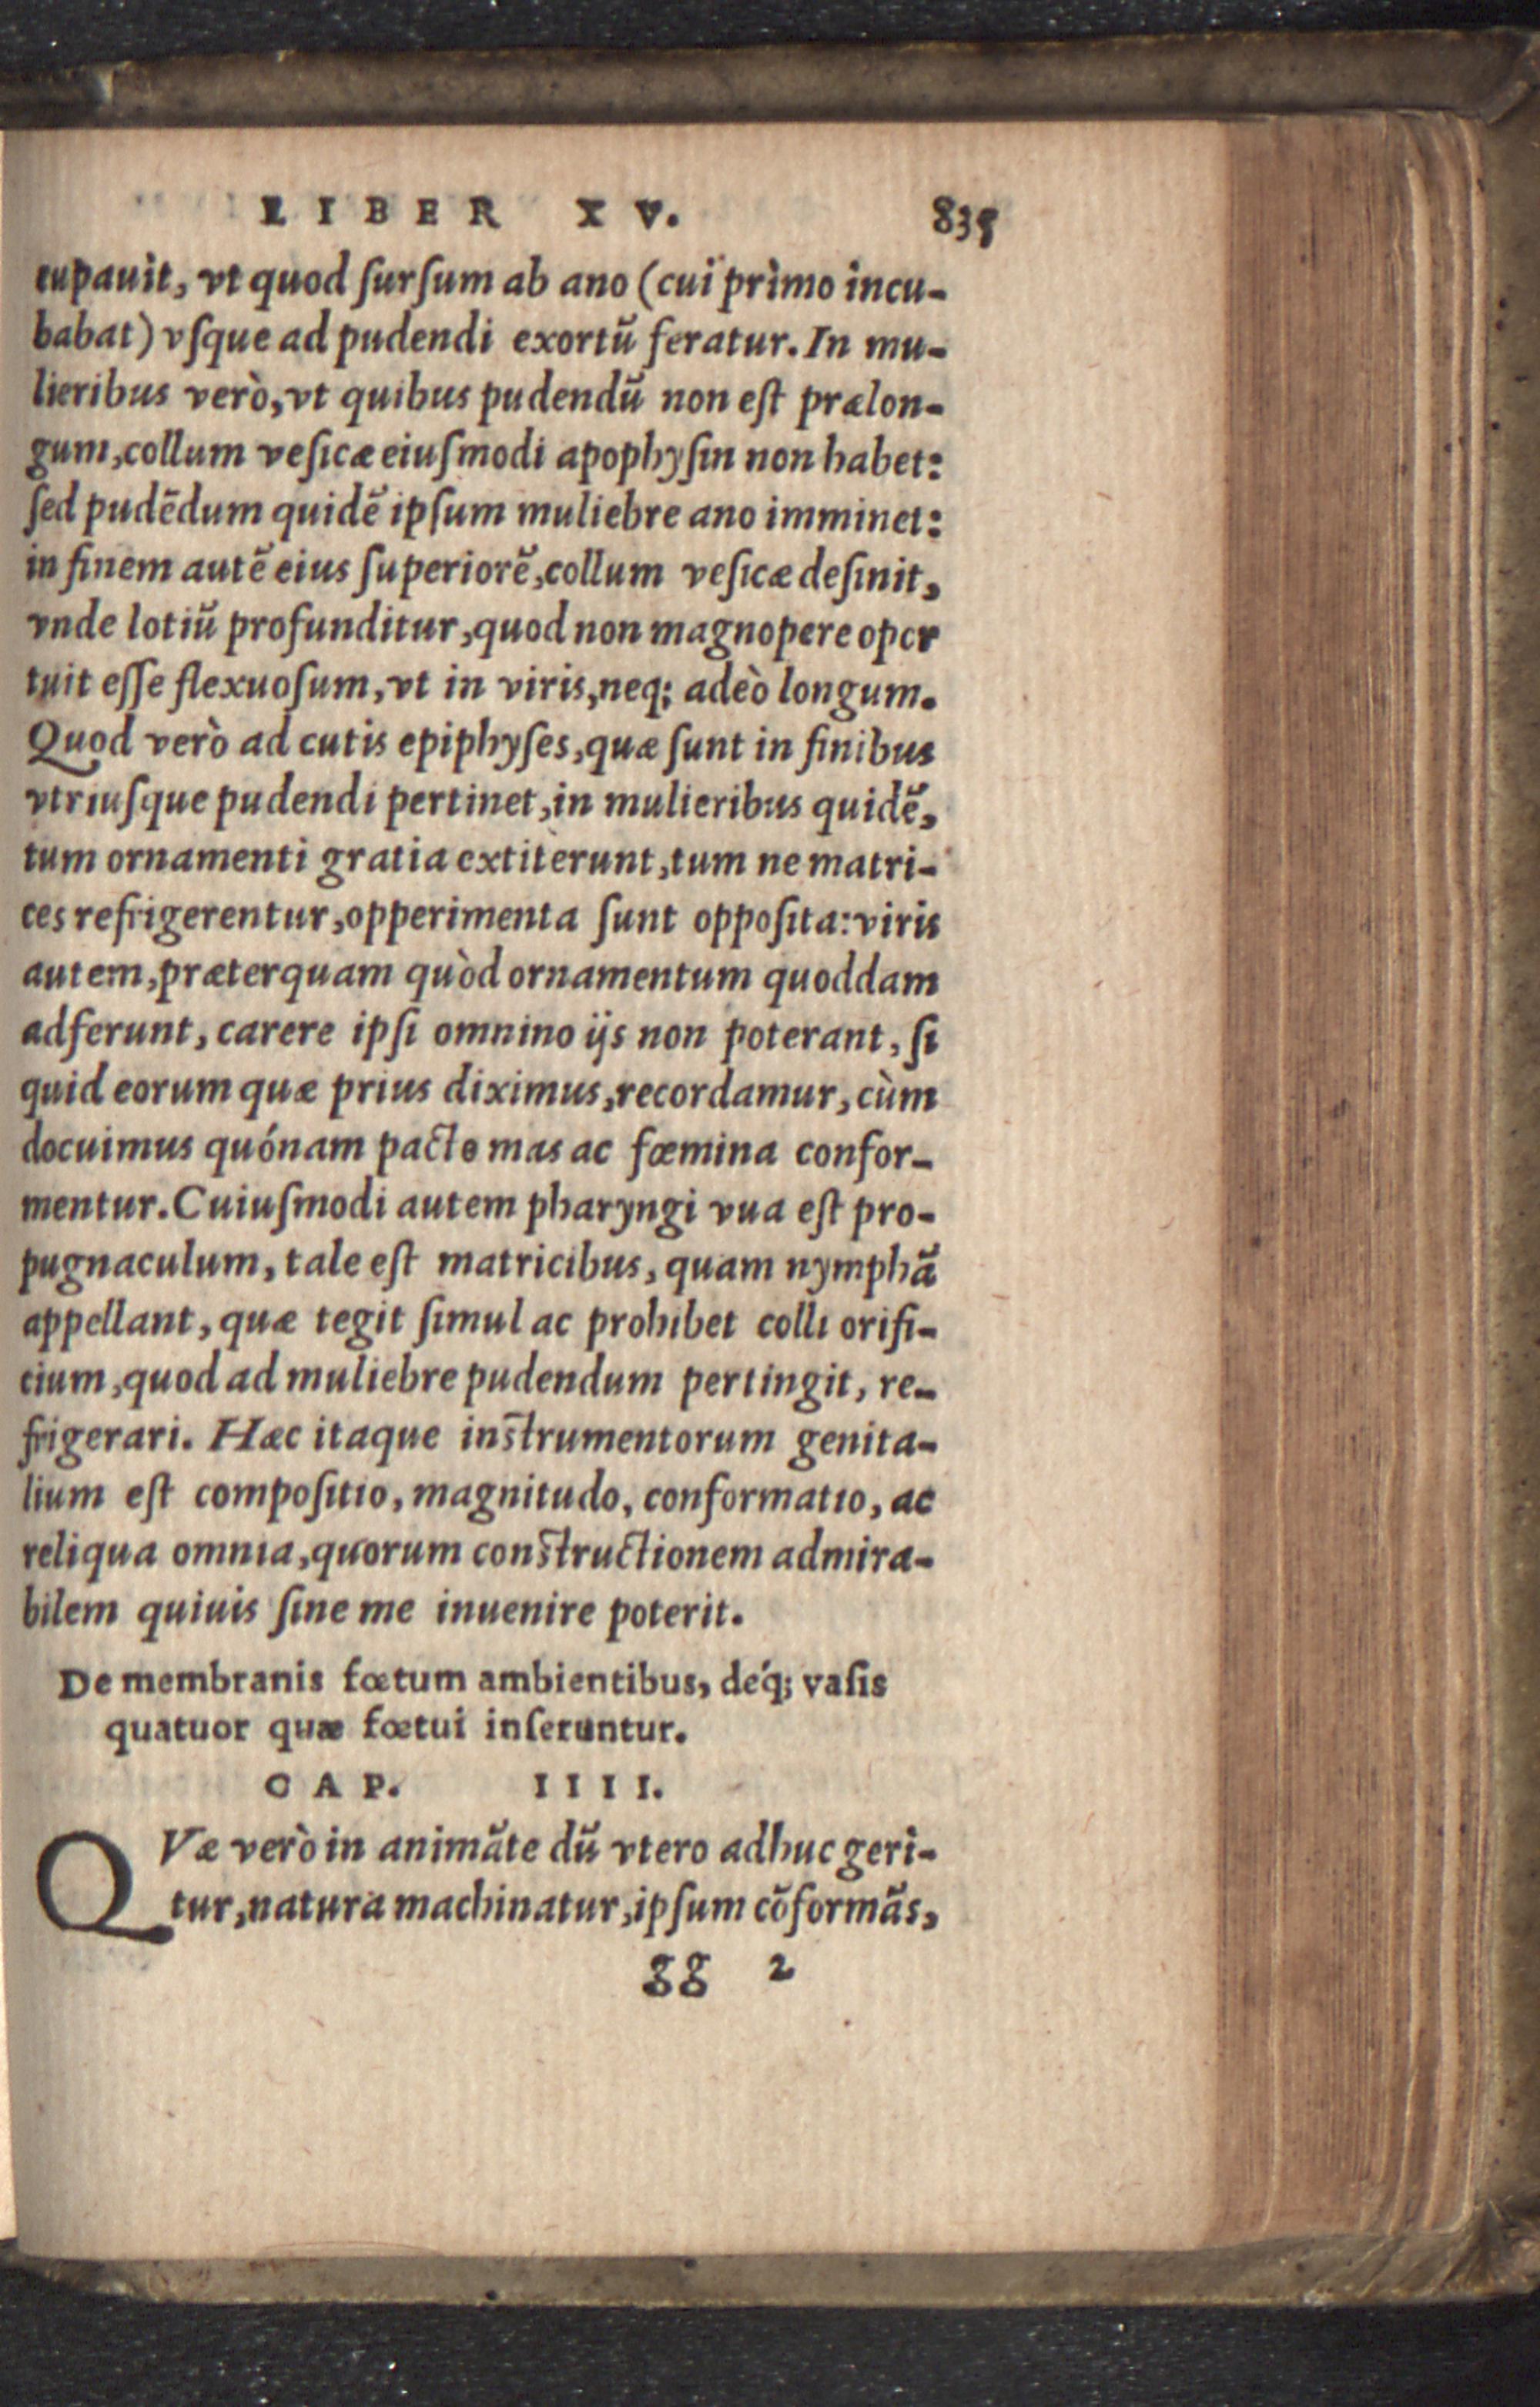 LIBER XV. 835
cupauit, vt quod ſurſum ab ano (cui primo incu-
babat) vſque ad pudendi exortū feratur. In mu-
lieribus verò, vt quibus pudendū non eſt prælon-
gum, collum veſicæ eiuſmodi apophyſin non habet:
ſed pudēdum quidē ipſum muliebre ano imminet:
in finem autē eius ſuperiorē, collum veſicæ deſinit,
vnde lotiū profunditur, quod non magnopere opor
tuit eſſe flexuoſum, vt in viris, neq; adeò longum.
Quod verò ad cutis epiphyſes, quæ ſunt in finibus
vtriuſque pudendi pertinet, in mulieribus quidē,
tum ornamenti gratia extiterunt, tum ne matri-
ces refrigerentur, opperimenta ſunt oppoſita: viris
autem, præterquam quòd ornamentum quoddam
adferunt, carere ipſi omnino ijs non poterant, ſi
quid eorum quæ prius diximus, recordamur, cùm
docuimus quónam pacto mas ac fœmina confor-
mentur. Cuiuſmodi autem pharyngi vua eſt pro-
pugnaculum, tale eſt matricibus, quam nymphā
appellant, quæ tegit ſimul ac prohibet colli orifi-
cium, quod ad muliebre pudendum pertingit, re-
frigerari. Hæc itaque inſtrumentorum genita-
lium eſt compoſitio, magnitudo, conformatio, ac
reliqua omnia, quorum conſtructionem admira-
bilem quiuis ſine me inuenire poterit.
De membranis fœtum ambientibus, déq; vaſis
quatuor quæ fœtui inſeruntur.
CAP. IIII.
QVæ verò in animāte dū vtero adhuc geri-
tur, natura machinatur, ipſum cōformās,
gg 2